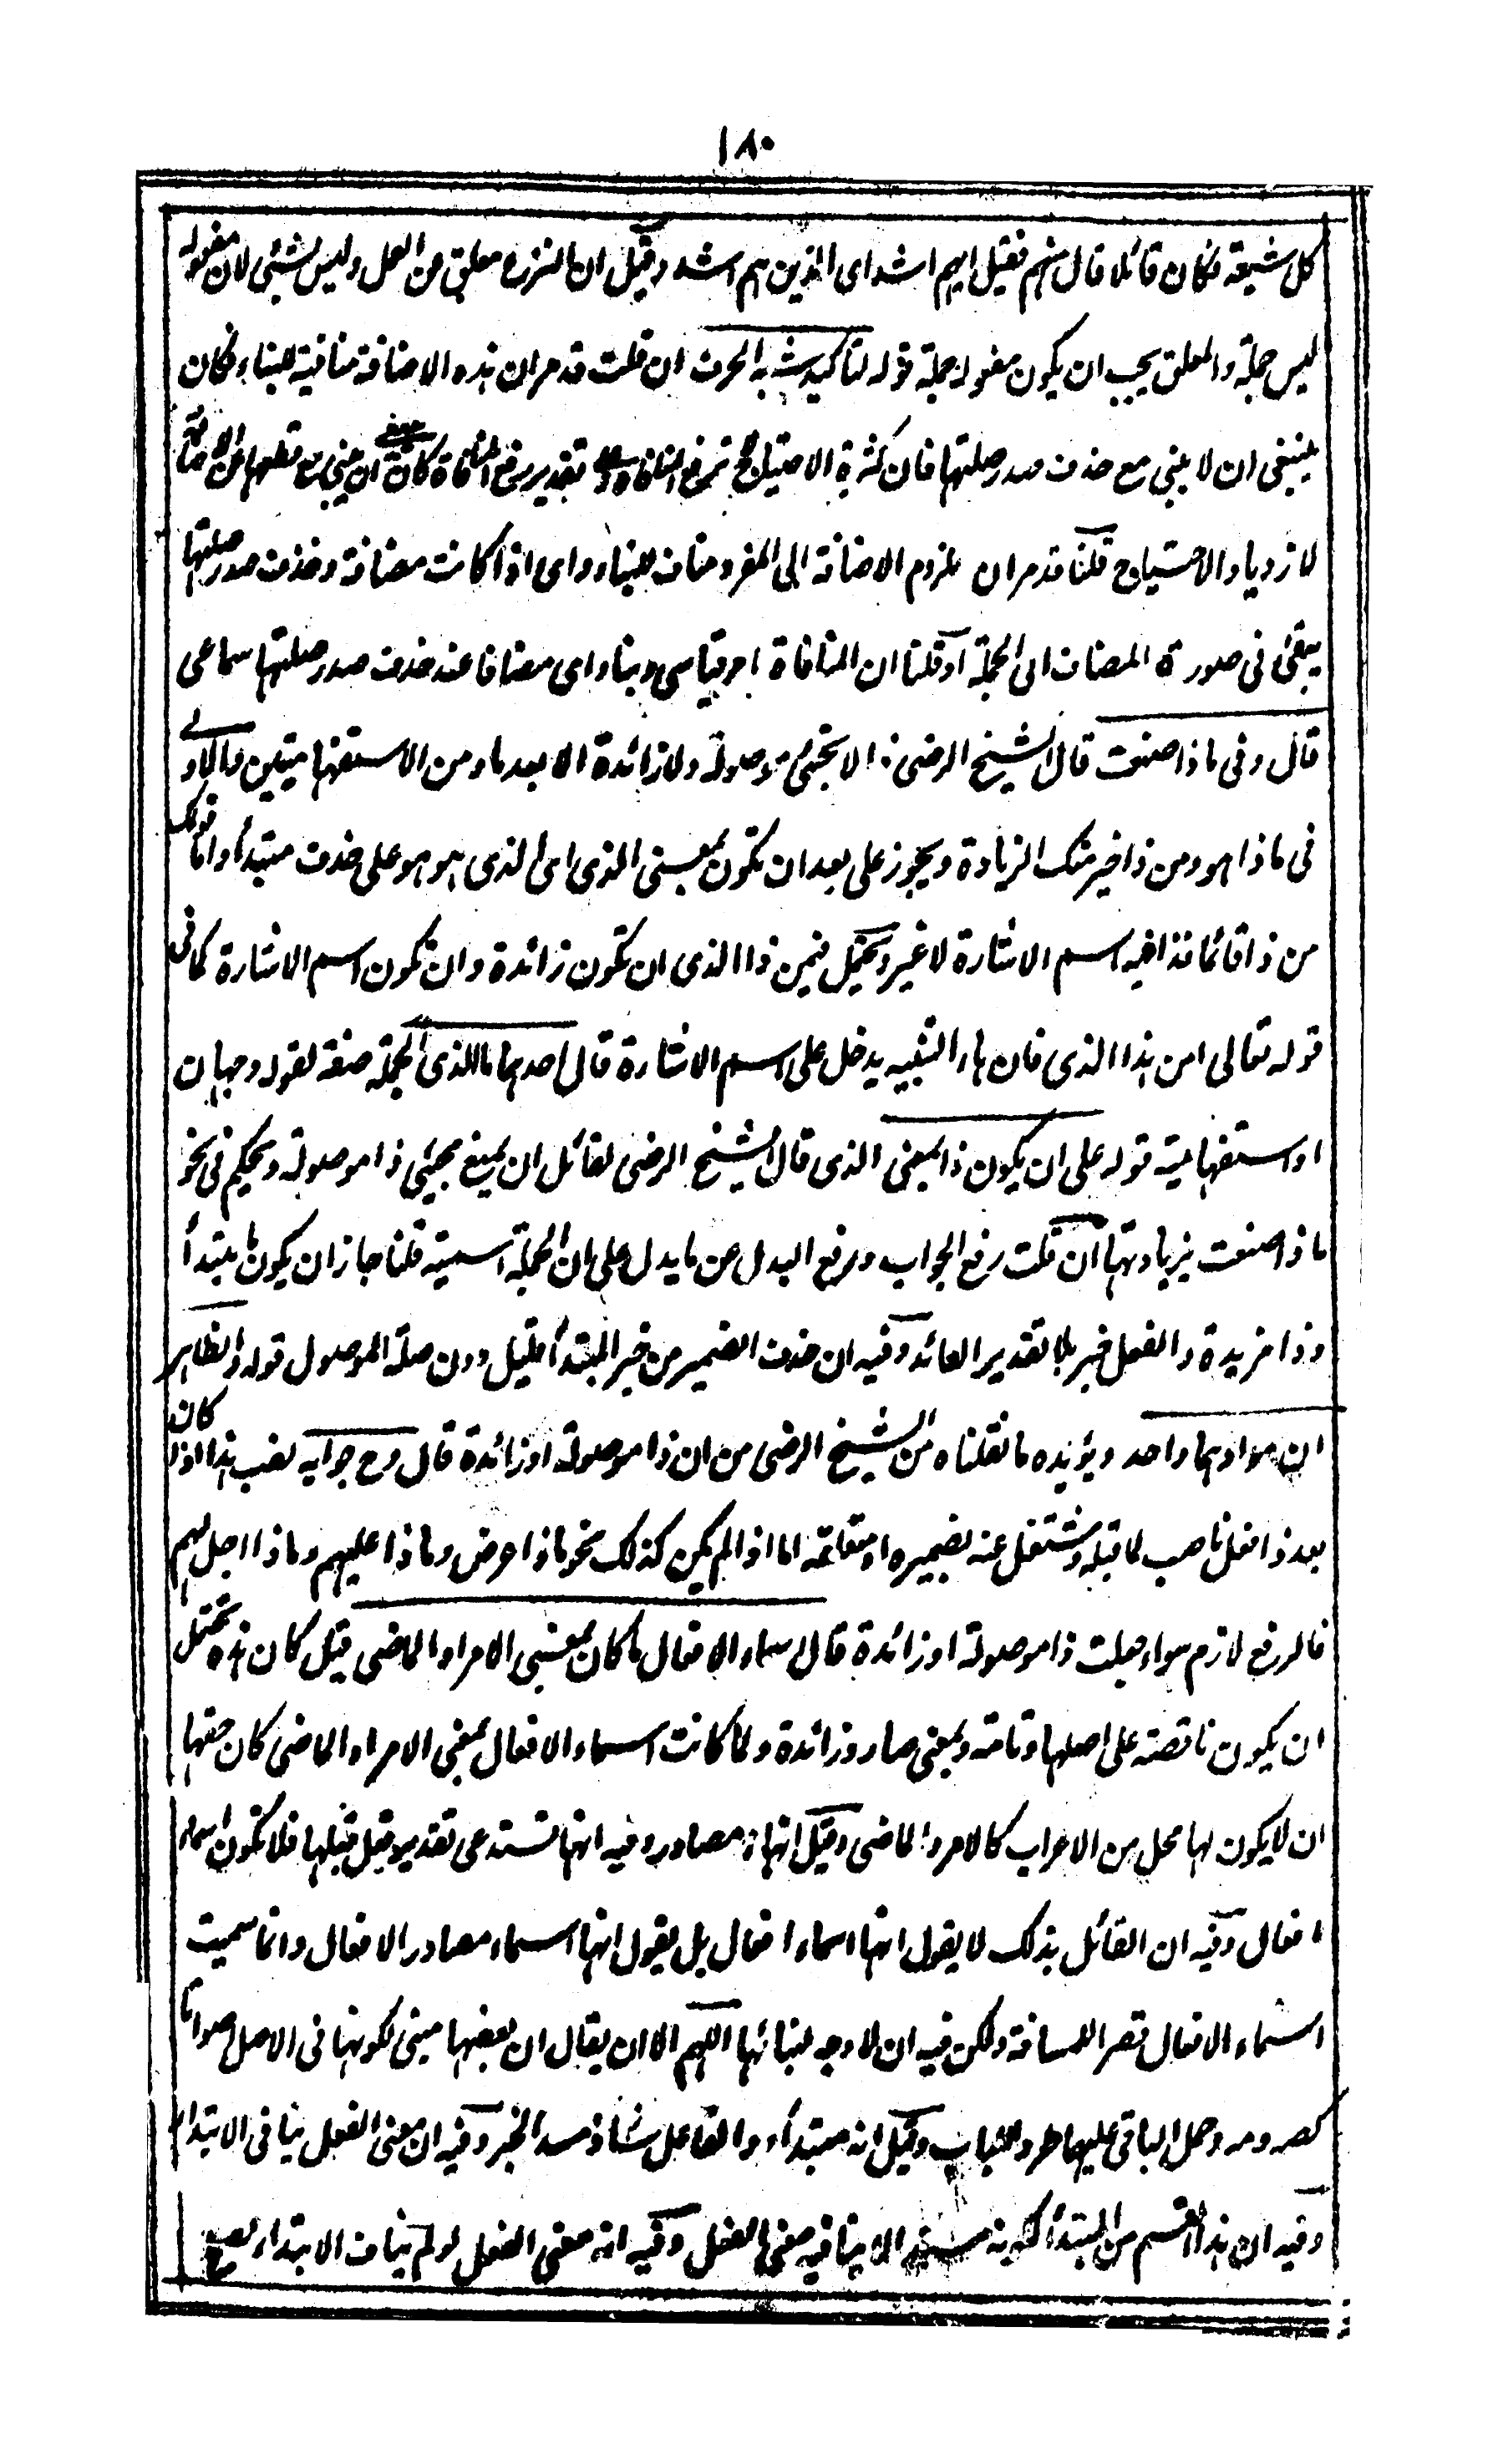 ١٨٠
كل شيعة فكان قائلا قال منهم فقيل ايهم اشد اى الذين هم اشد وقيل ان لننزعن معلق عن العمل وليس بشئى لان مفعوله
ليس جملة والمعلق يجب ان يكون مفعوله جملة قوله لتاكيد شبه الحرف ان قلت قد مر ان هذه الاضافة منافية للبناء فكان
ينبغى ان لا يبنى مع حذف صدر صلتها فان كثرة الاحتياج ترفع المنافاة بتقدير رفع المنافاة كان ان يبنى مع قطعها عن الاضافة
لازدياد الاحتياج قلنا قد مر ان لزوم الاضافة الى المفرد مناف للبناء واى اذا كانت مضافة وحذف صدر صلتها
يبقى فى صورة المضاف الى الجملة او قلنا ان المنافاة امر قياسى وبناء اى مضافا عند حذف صدر صلتها سماعى
قال وفى ماذا صنعت قال الشيخ الرضى ذا لا يجئ موصولة ولا زائدة الا بعد ما ومن الاستفهاميتين والاولى
فى ماذا هو ومن ذا خير منك الزيادة ويجوز على بعد ان تكون بمعنى الذى اى الذى هو هو على حذف مبتدأ واما قولك
من ذا قائما فذا فيه اسم الاشارة لا غير ويحتمل فى من ذا الذى ان تكون زائدة وان تكون اسم الاشارة كما فى
قوله تعالى امن هذا الذى فان هاء التنبيه يدخل على اسم الاشارة قال احدهما ما الذى الجملة صفة لقوله وجهان
او استفهامية قوله على ان يكون ذا بمعنى الذى قال الشيخ الرضى لقائل ان يمنع مجيئى ذا موصولة ويحكم فى نحو
ماذا صنعت بزيادتها ان قلت رفع الجواب ورفع البدل من ما يدل على ان الجملة اسمية قلنا جاز ان يكون ما مبتدأ
وذا مزيدة والفعل خبر بلا تقدير العائد وفيه ان حذف الضمير من خبر المبتدأ قليل دون صلة الموصول قوله والظاهر
ان مرادهما واحد ويؤيده ما نقلناه من الشيخ الرضى من ان ذا موصولة او زائدة قال وح جوابه نصب هذا اذا كان
بعد ذا فعل ناصب لما قبله او مشتغل عنه بضميره او متعلقه اما اذا لم يكن كذلك نحو ماذا عرض وماذا عليهم وماذا احل لهم
فالرفع لازم سواء جعلت ذا موصولة او زائدة قال اسماء الافعال ما كان بمعنى الامر او الماضى قيل كان هذه تحتمل
ان يكون ناقصة على اصلها وتامة وبمعنى صار وزائدة ولما كانت اسماء الافعال بمعنى الامر او الماضى كان حقها
ان لا يكون لها محل من الاعراب كالامر والماضى وقيل انها مصادر وفيه انها تستدعى تقدير فعل قبلها فلا تكون اسماء
افعال وفيه ان القائل بذلك لا يقول انها اسماء افعال بل يقول انها اسماء مصادر الافعال وانما سميت
اسماء الافعال قصرا للمسافة ولكن فيه ان لا وجه لبنائها اللهم الا ان يقال ان بعضها مبنى لكونها فى الاصل صواتا
كصه ومه وحمل الباقى عليها طردا للباب وقيل انه مبتدأ والفاعل ساد مسد الخبر وفيه ان معنى الفعل ينافى الابتداء
وفيه ان هذا القسم من المبتدأ لكونه مسندا لا ينافيه معنى الفعل وفيه انه معنى الفعل لو لم يناف الابتداء لصح